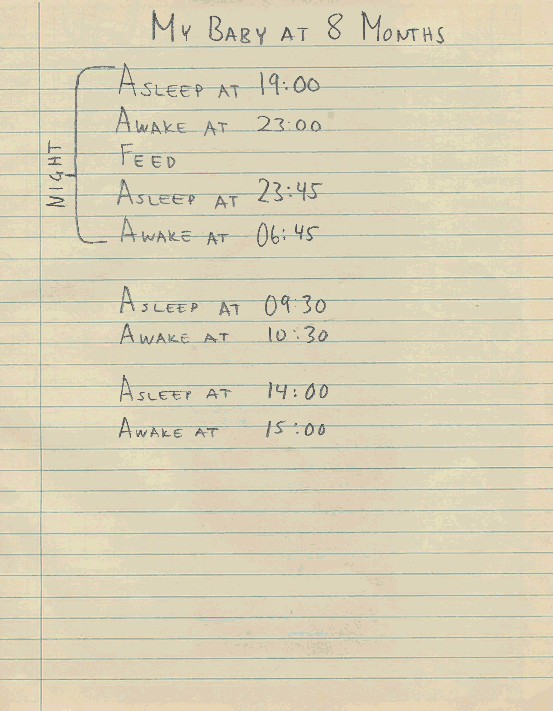 My Baby at 8 Months
Night
Asleep at 19:00
Awake at 23:00
Feed
Asleep at 23:45
Awake at 06:45
Asleep at 09:30
Awake at 10:30
Asleep at 14:00
Awake at 15:00